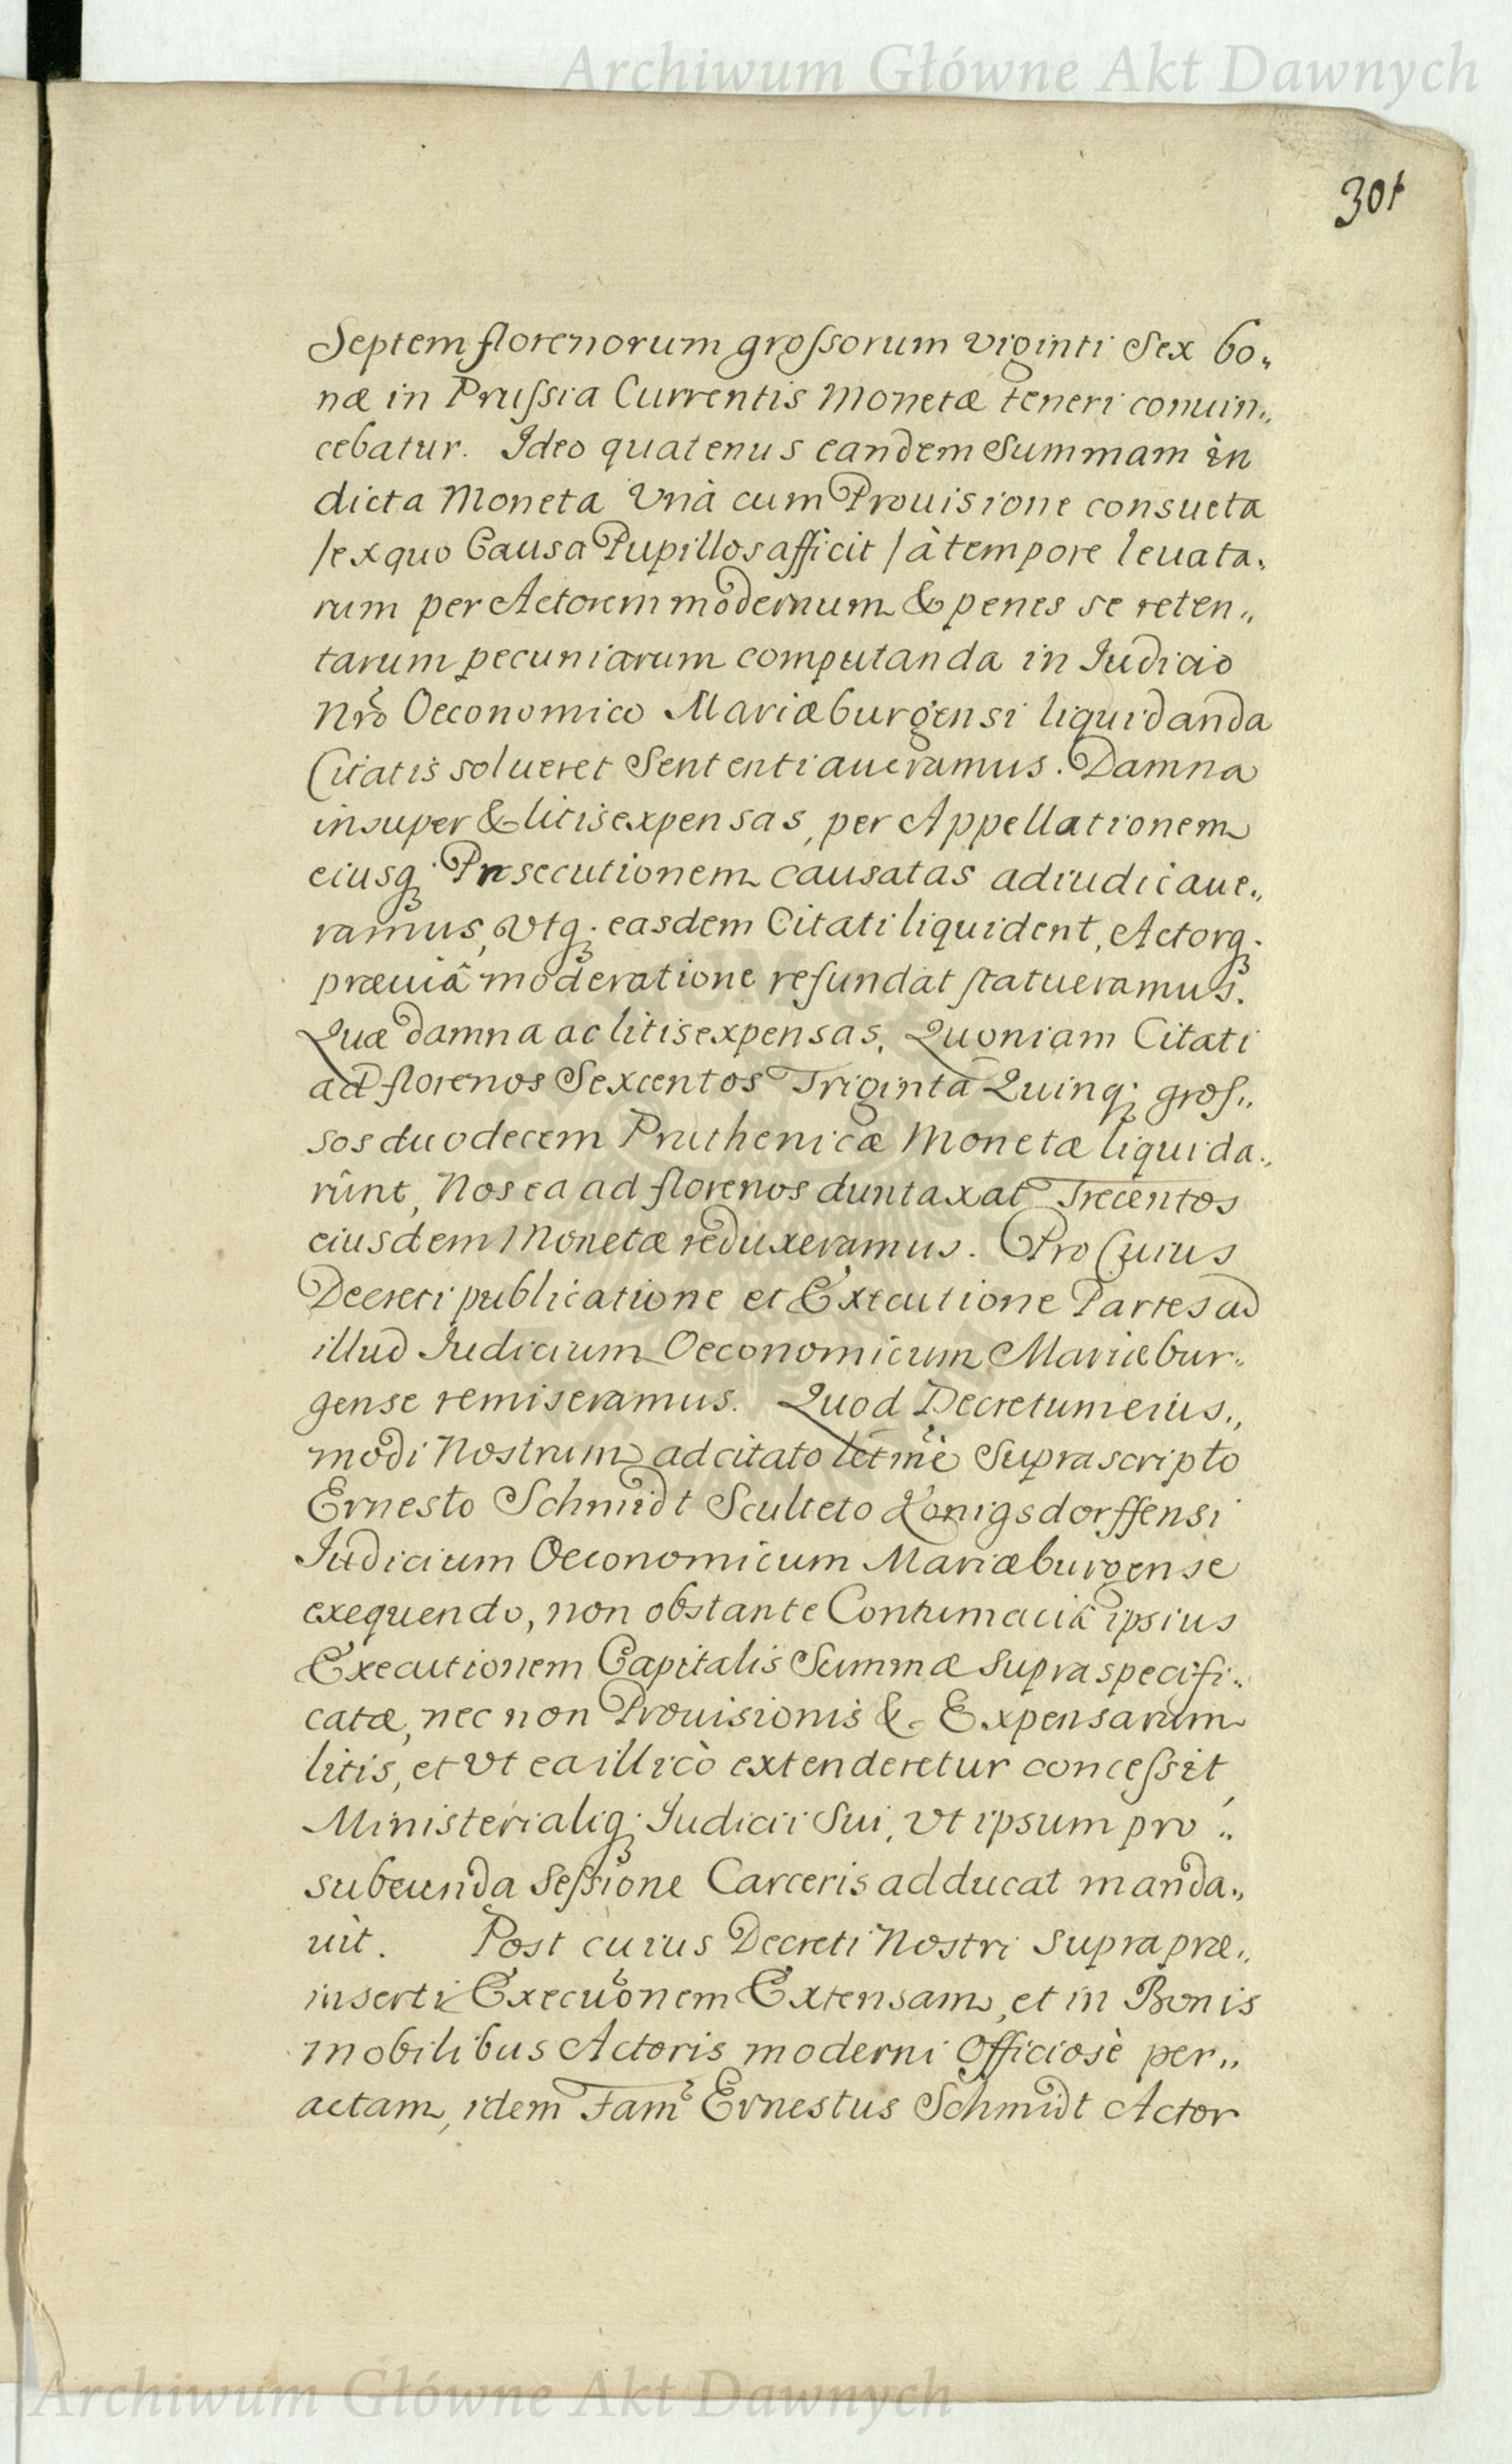 Archiwum Główne Akt Dawnych
301
Septem florenorum grossorum viginti Sex bo„
næ in Prussia Currentis Monetæ teneri conuin„
cebatur. Ideo quatenus eandem Summam in
dicta Moneta Vnà cum Prouisione consueta
/ex quo Causa Pupillos afficit/ à tempore leuata„
rum per Actorem modernum & penes se reten„
tarum pecuniarum computanda in Iudicio
Nrõ Oeconomico Mariæburgensi liquidanda
Citatis solueret Sententiaueramus. Damna
insuper & litis expensas, per Appellationem
eiusq; Prosecutionem causatas adiudicaue„
ramus, Vtq; easdem Citati liquident, Actorq;
præuiâ moderatione refundat statueramus.
Quæ damna ac litis expensas, Quoniam Citati
ad florenos Sexcentos Triginta Quinq; gros„
sos duodecem Pruthenicæ Monetæ liquida„
runt, Nos ea ad florenos duntaxat Trecentos
eiusdem Monetæ reduxeramus. Pro Cuius
Decreti publicatione et Executione Partes ad
illud Iudicium Oeconomicum Mariæbur„
gense remiseramus. Quod Decretum eius„
modi Nostrum ad citato letmē Suprascripto
Ernesto Schmidt Sculteto Königsdorffensi
Iudicium Oeconomicum Mariæburgense
exequendo, non obstante Contumaciâ ipsius
Executionem Capitalis Summæ supra specifi„
catæ, nec non Prouisionis & Expensarum
litis, et Vt ea illicò extenderetur concessit,
Ministerialiq; Iudicii Sui, Vt ipsum pro„
subeunda Sessione Carceris adducat manda„
uit. Post cuius Decreti Nostri supra præ„
inserti Execuõnem Extensam, et in Bonis
mobilibus Actoris moderni Officiosè per„
actam, idem Fam̃ Ernestus Schmidt Actor
Archiwum Główne Akt Dawnych